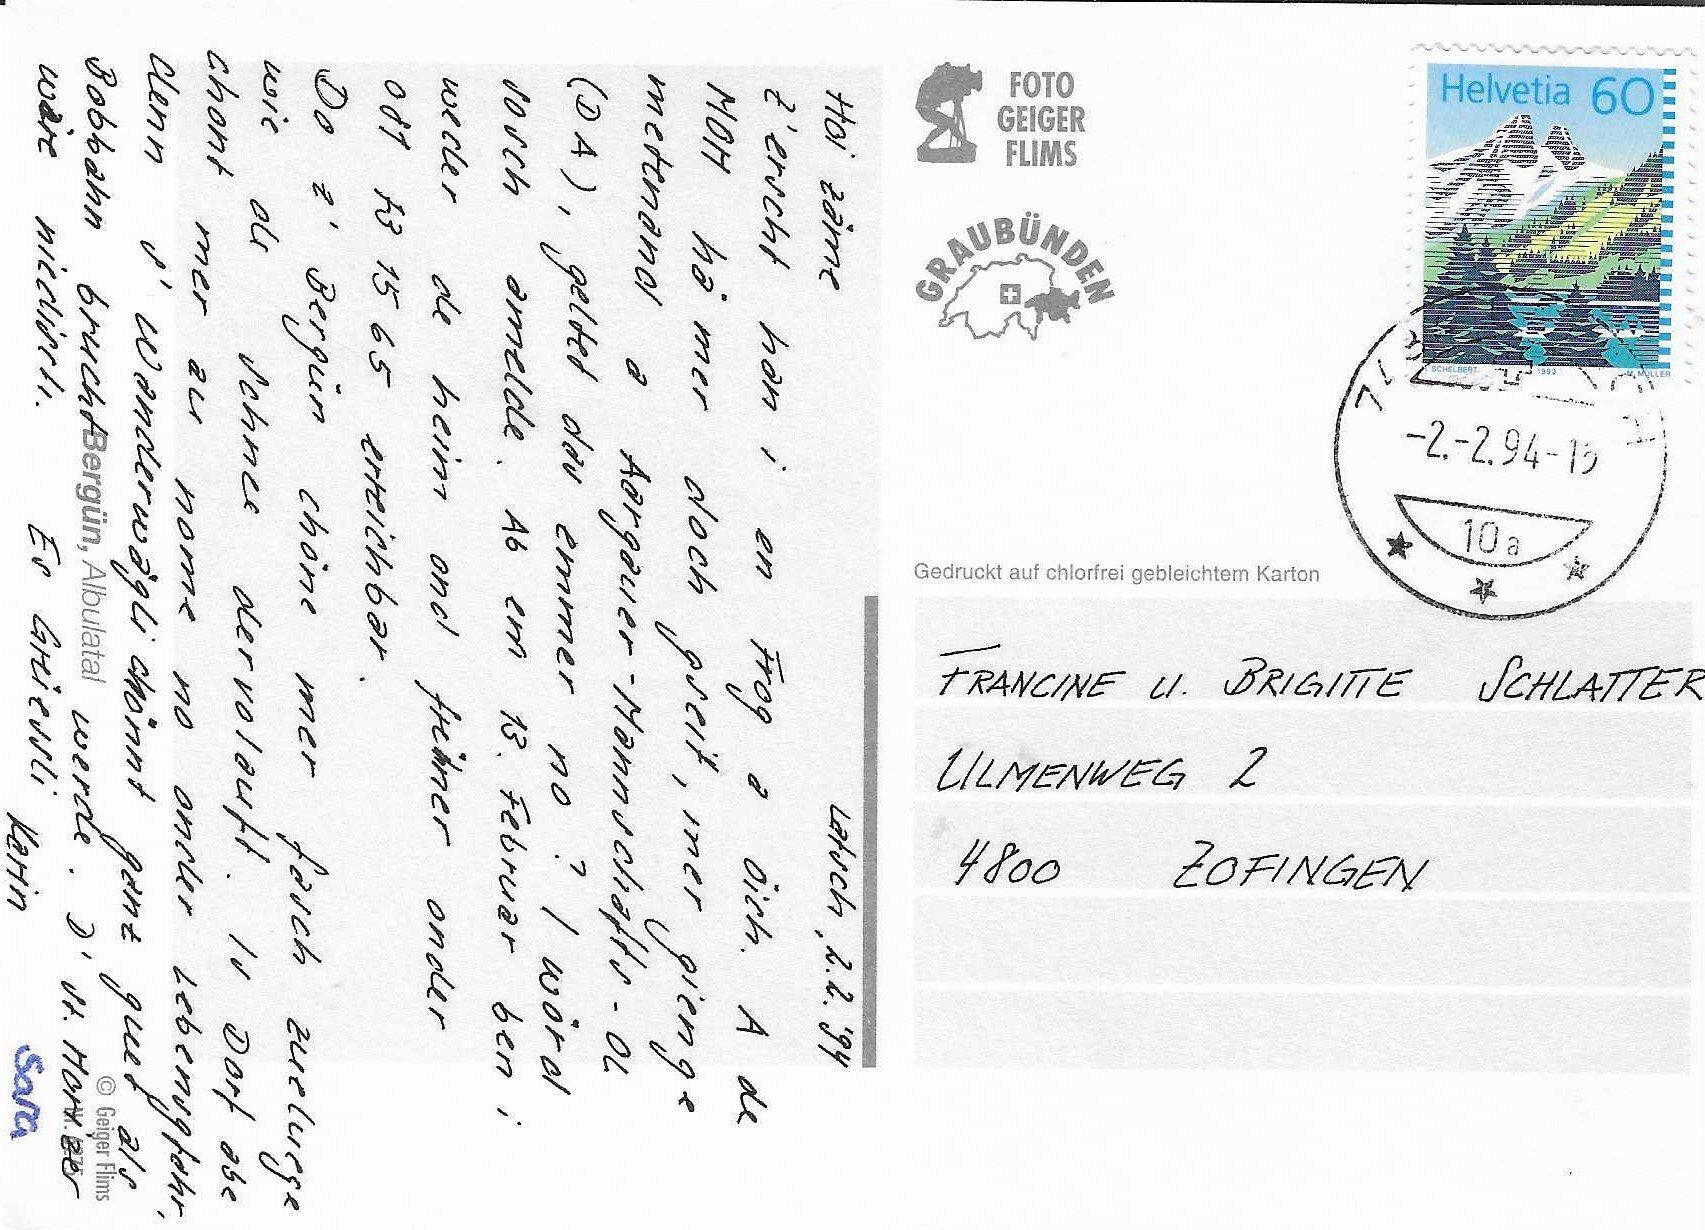 Latsch, 2.2.'94
Hoi zäme
Z'erscht han i en Frog a öich. A de
MOM hä mer doch gseit, mer gienge
metenand a Aargauer-Mannschafts-OL
(DA), gelted das emmer no? I wörd
ösch amelde. Ab em 13. Februar ben i
weder de heim ond früner onder
081 73 15 65 erreichbar.
Do z' Bergün chöne mer fasch zueluege
wie de Schnee dervolauft. Is Dorf abe
chont mer au nome no onder Lebensgfahr,
denn s' Wanderwägli chönnt ganz guet als
Bobbahn bruucht werde. D' St. Moritzer
wäre niedisch. Es Grüessli Karin
Sara
Bergün, Albulatal
© Geiger Flims
FOTO
GEIGER
FLIMS
GRAUBÜNDEN
Helvetia 60
SCHELBERT 1993 M. MÜLLER
-2.-2.94-15
10a
Gedruckt auf chlorfrei gebleichtem Karton
FRANCINE U. BRIGITTE SCHLATTER
ULMENWEG 2
4800 ZOFINGEN